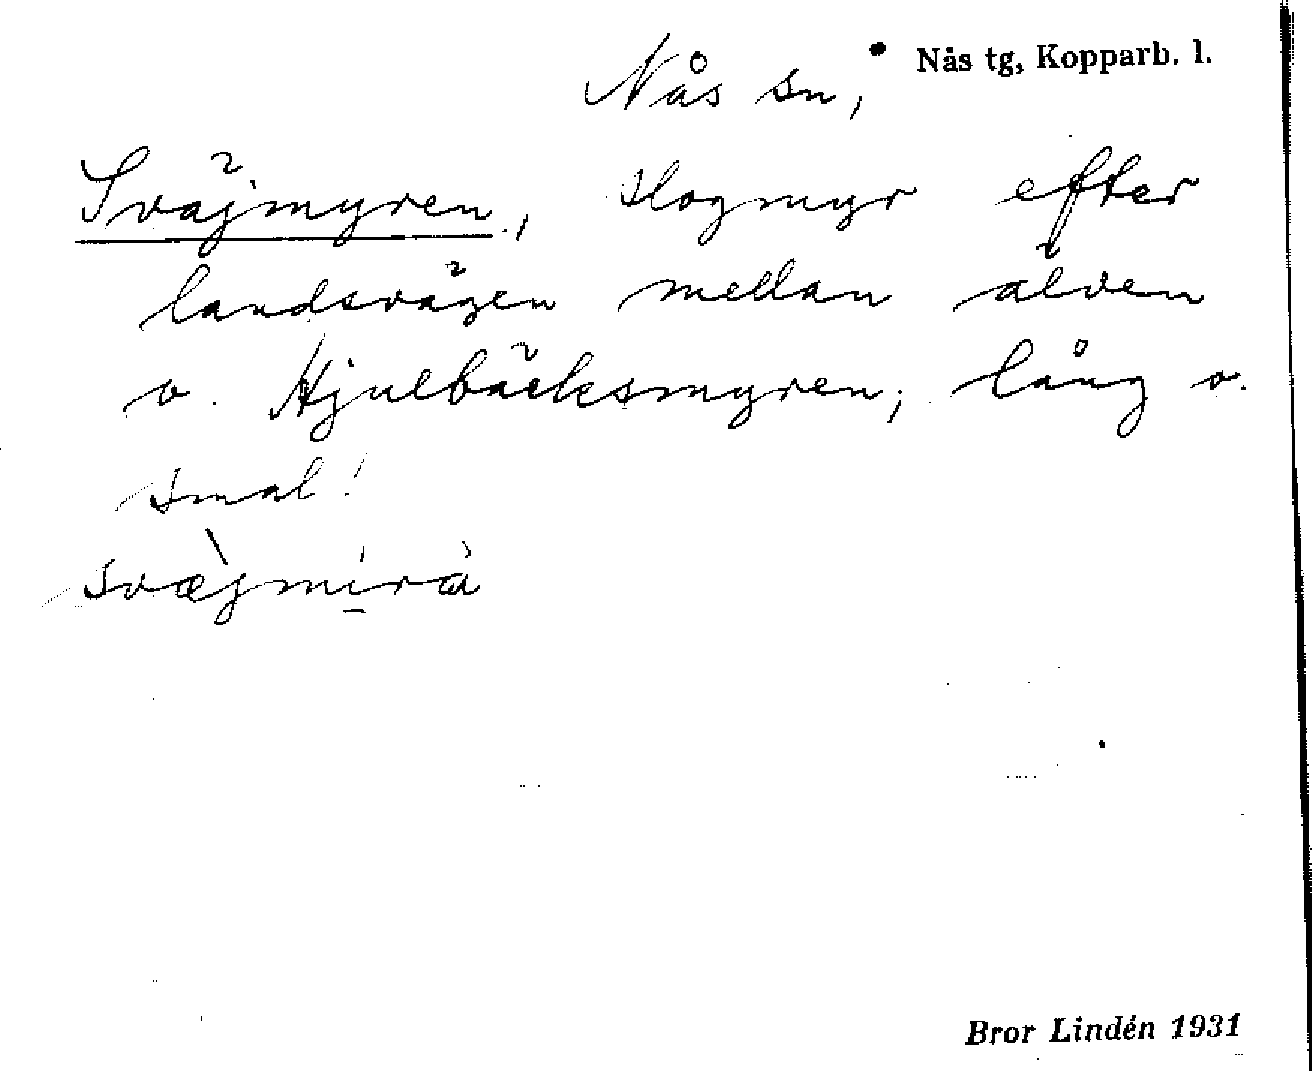 Nås sn, Nås tg, Kopparb. l.
Sväjmyren, slogmyr efter
landsvägen mellan älven
o. Hjulbäcksmyren; lång o.
smal!
svæ̀jmi̱rà
Bror Lindén 1931